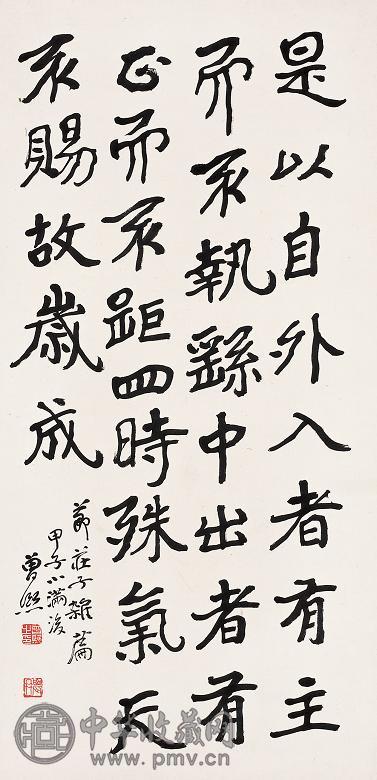 是以自外入者有主
而不執繇中出者有
正而不距四時殊氣天
不賜故歲成
節莊子雜篇
甲子小滿後
曾熙
中华收藏网
www.pmv.cn